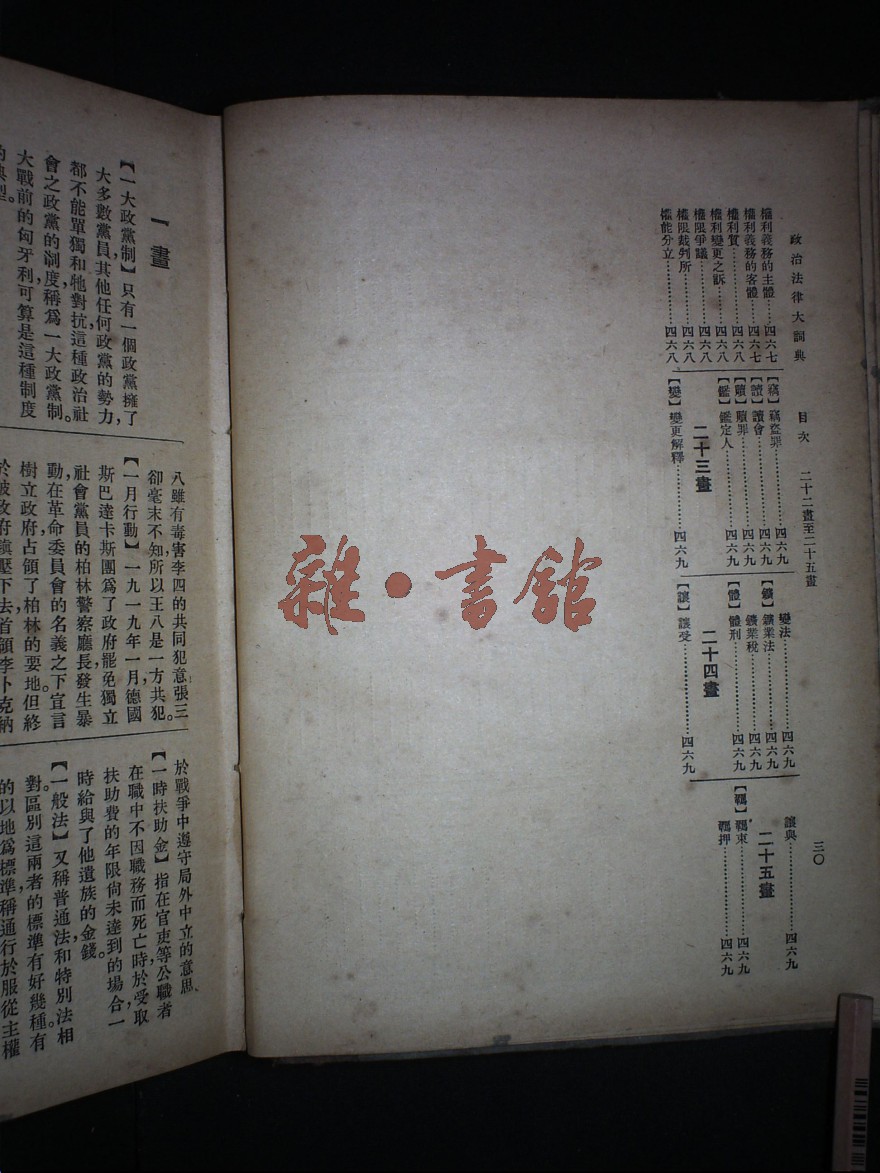 政治法律大詞典　目次　二十二畫至二十五畫　三〇
權利義務的主體……四六七
權利義務的客體……四六七
權利質……四六八
權利變更之訴……四六八
權限爭議……四六八
權限裁判所……四六八
權能分立……四六八
【竊】竊盜罪……四六九
【讀】讀會……四六九
【贖】贖罪……四六九
【鑑】鑑定人……四六九
二十三畫
【變】變更解釋……四六九
變法……四六九
【鑛】鑛業法……四六九
鑛業稅……四六九
【體】體刑……四六九
二十四畫
【讓】讓受……四六九
讓與……四六九
二十五畫
【羈】羈束……四六九
羈押……四六九
雜·書館
一畫
【一大政黨制】只有一個政黨擁了
大多數黨員，其他任何政黨的勢力，
都不能單獨和牠對抗這種政治社
會之政黨的制度，稱爲一大政黨制。
大戰前的匈牙利可算是這種制度
的典型。
八雖有毒害李四的共同犯意，張三
卻毫末不知，所以王八是一方共犯。
【一月行動】一九一九年一月德國
斯巴達卡斯團爲了政府罷免獨立
社會黨員的柏林警察廳長，發生暴
動，在革命委員會的名義之下，宣言
樹立政府，占領了柏林的要地，但終
於被政府鎮壓下去，首領李卜克納
於戰爭中遵守局外中立的意思、
【一時扶助金】指在官吏等公職者，
在職中不因職務而死亡時，於受取
扶助費的年限尚未達到的場合，一
時給與了他遺族的金錢。
【一般法】又稱普通法，和特別法相
對。區別這兩者的標準有好幾種。有
的以地爲標準，稱通行於服從主權